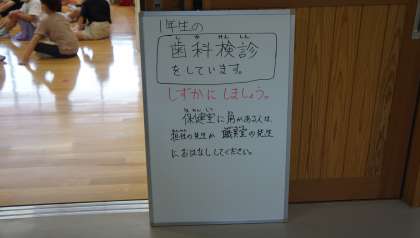 1年生の
し か けん しん
歯科検診
をしています。
しずかにしましょう。
ほけんしつ
保健室に用がある人は、
担任の先生か 職員室の先生
におはなししてください。